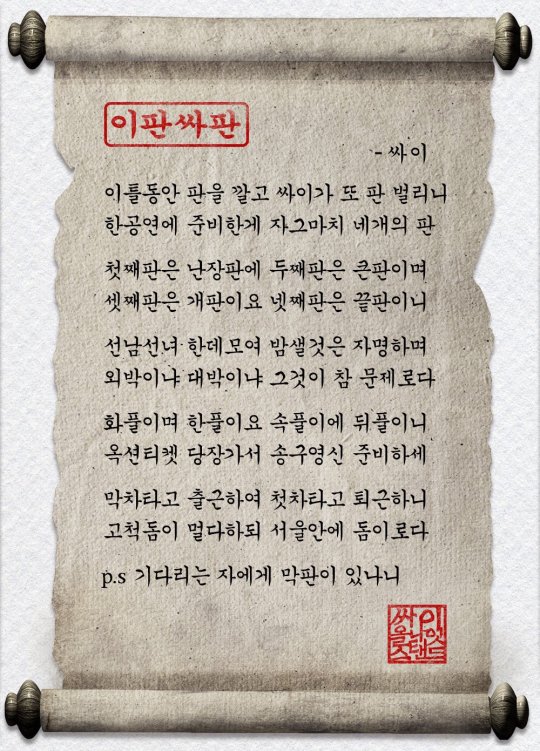 이판싸판
- 싸이
이틀동안 판을 깔고 싸이가 또 판 벌리니
한공연에 준비한게 자그마치 네개의 판
첫째판은 난장판에 두째판은 큰판이며
셋째판은 개판이요 넷째판은 끝판이니
선남선녀 한데모여 밤샐것은 자명하며
외박이냐 대박이냐 그것이 참 문제로다
화풀이며 한풀이요 속풀이에 뒤풀이니
옥션티켓 당장가서 송구영신 준비하세
막차타고 출근하여 첫차타고 퇴근하니
고척돔이 멀다하되 서울안에 돔이로다
p.s 기다리는 자에게 막판이 있나니
싸이
올나잇
스탠드